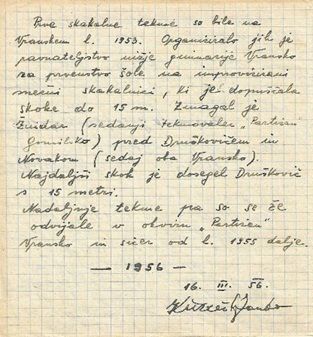 Prve skakalne tekme so bile na
Vranskem l. 1953. Organiziralo jih je
ravnateljstvo nižje gimnazije Vransko
za prvenstvo šole na improvizirani
snežni skakalnici, ki je dopuščala
skoke do 15 m. Zmagal je
Žnidar (sedanji tekmovalec „Partizan
Gomilsko) pred Druškovičem in
Novakom (sedaj oba Vransko).
Najdaljši skok je dosegel Druškovič
s 15 metri.
Nadaljnje tekme pa so se že
odvijale v okviru „Partizan"
Vransko in sicer od l. 1955 dalje.
— 1956 —
16. III. 56.